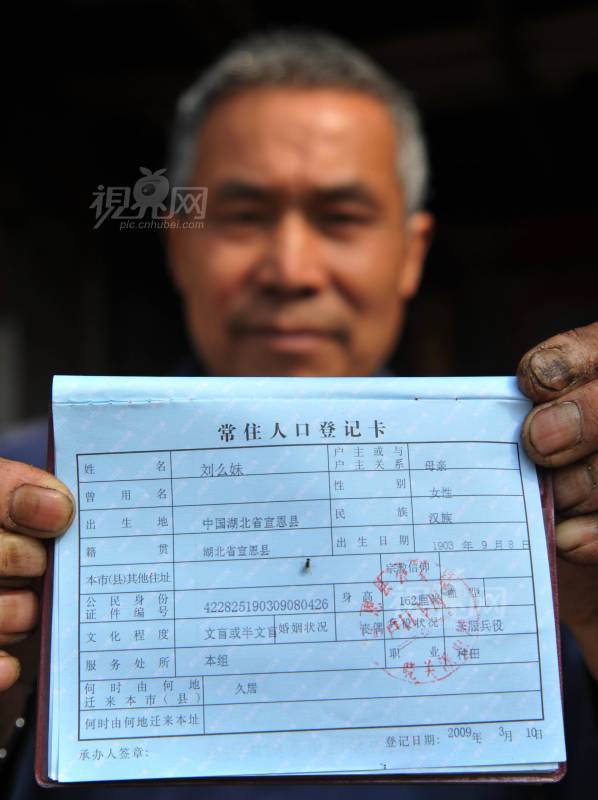 視界网
pic.cnhubei.com
常住人口登记卡
姓 名 刘么妹 户主或与户主关系 母亲
曾用名 性别 女性
出生地 中国湖北省宣恩县 民族 汉族
籍贯 湖北省宣恩县 出生日期 1903年9月8日
本市(县)其他住址 宗教信仰
公民身份证件编号 422825190309080426 身高 162
文化程度 文盲或半文盲 婚姻状况 丧偶 状况 兵役
服务处所 本组 职业 种田
何时由何地迁来本市(县) 久居
何时由何地迁来本址
承办人签章: 登记日期: 2009年3月10日